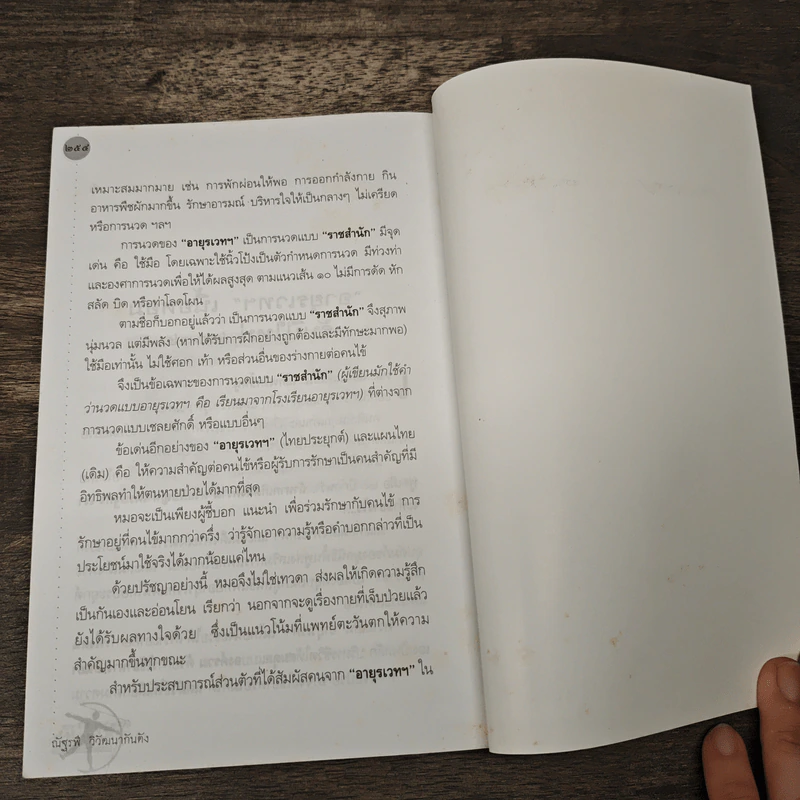 ๒๕๘
เหมาะสมมากมาย เช่น การพักผ่อนให้พอ การออกกำลังกาย กิน
อาหารพืชผักมากขึ้น รักษาอารมณ์ บริหารใจให้เป็นกลางๆ ไม่เครียด
หรือการนวด ฯลฯ
การนวดของ “อายุรเวทฯ” เป็นการนวดแบบ “ราชสำนัก” มีจุด
เด่น คือ ใช้มือ โดยเฉพาะใช้นิ้วโป้งเป็นตัวกำหนดการนวด มีท่วงท่า
และองศาการนวดเพื่อให้ได้ผลสูงสุด ตามแนวเส้น ๑๐ ไม่มีการดัด หัก
สลัด บิด หรือท่าโลดโผน
ตามชื่อก็บอกอยู่แล้วว่า เป็นการนวดแบบ “ราชสำนัก” จึงสุภาพ
นุ่มนวล แต่มีพลัง (หากได้รับการฝึกอย่างถูกต้องและมีทักษะมากพอ)
ใช้มือเท่านั้น ไม่ใช้ศอก เท้า หรือส่วนอื่นของร่างกายต่อคนไข้
จึงเป็นข้อเฉพาะของการนวดแบบ “ราชสำนัก” (ผู้เขียนมักใช้คำ
ว่านวดแบบอายุรเวทฯ คือ เรียนมาจากโรงเรียนอายุรเวทฯ) ที่ต่างจาก
การนวดแบบเชลยศักดิ์ หรือแบบอื่นๆ
ข้อเด่นอีกอย่างของ “อายุรเวทฯ” (ไทยประยุกต์) และแผนไทย
(เดิม) คือ ให้ความสำคัญต่อคนไข้หรือผู้รับการรักษาเป็นคนสำคัญที่มี
อิทธิพลทำให้ตนหายป่วยได้มากที่สุด
หมอจะเป็นเพียงผู้ชี้บอก แนะนำ เพื่อร่วมรักษากับคนไข้ การ
รักษาอยู่ที่คนไข้มากกว่าครึ่ง ว่ารู้จักเอาความรู้หรือคำบอกกล่าวที่เป็น
ประโยชน์มาใช้จริงได้มากน้อยแค่ไหน
ด้วยปรัชญาอย่างนี้ หมอจึงไม่ใช่เทวดา ส่งผลให้เกิดความรู้สึก
เป็นกันเองและอ่อนโยน เรียกว่า นอกจากจะดูเรื่องกายที่เจ็บป่วยแล้ว
ยังได้รับผลทางใจด้วย ซึ่งเป็นแนวโน้มที่แพทย์ตะวันตกให้ความ
สำคัญมากขึ้นทุกขณะ
สำหรับประสบการณ์ส่วนตัวที่ได้สัมผัสคนจาก “อายุรเวทฯ” ใน